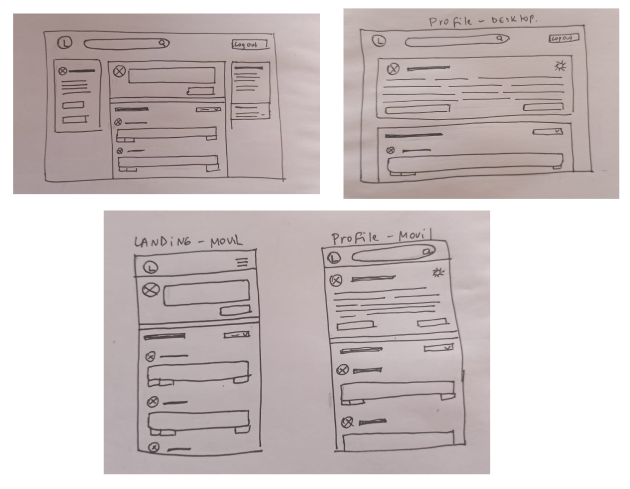 L
Log out
Profile - DESKTOP.
L
Log out
LANDING - MOVIL
L
Profile - Movil
L